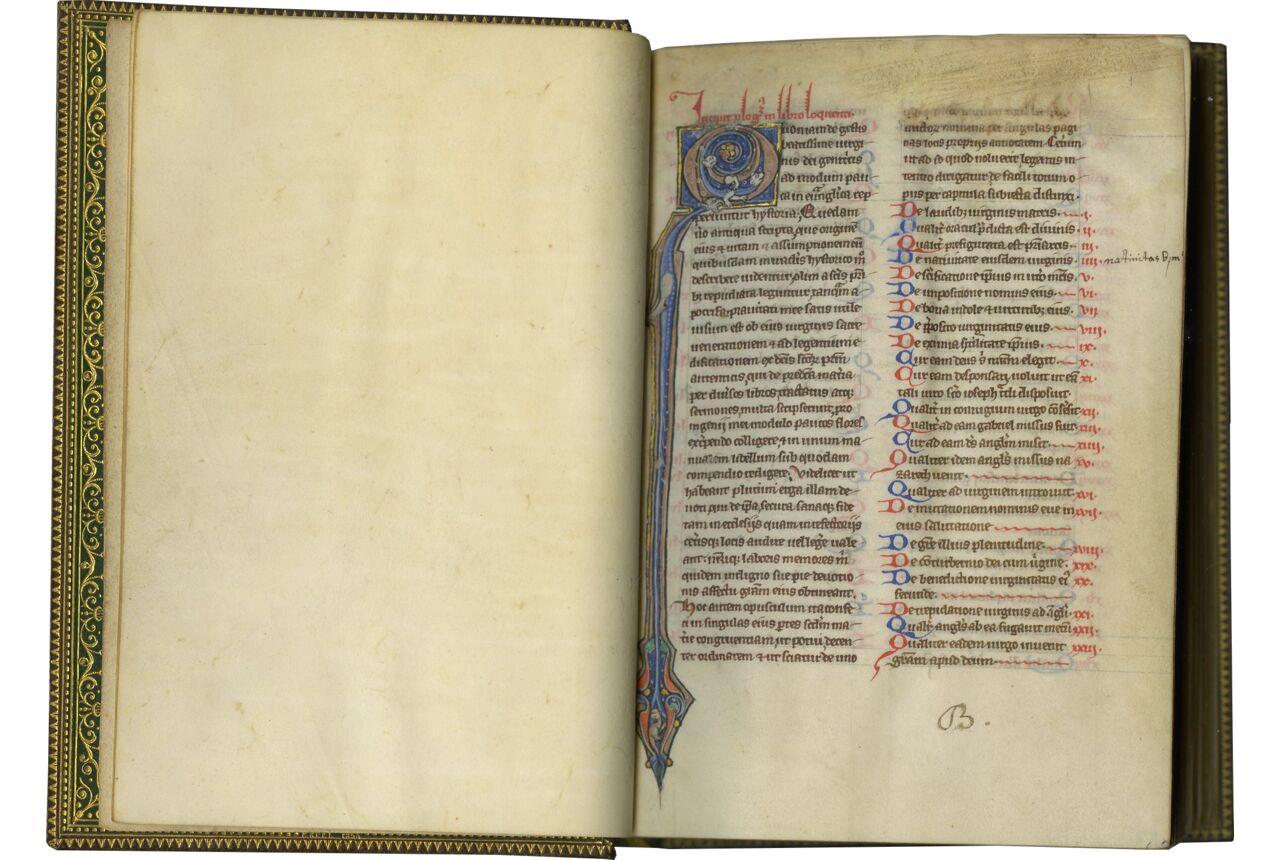 Incipit ꝓlogꝰ in libro loquenti.
Quoniam de gestis
beatissime uirgi
nis dei genitͥcis
ad modum pau
ca in euãglica rep
periuntur hystoria. Quedam
ũo antiqua scripta, que originẽ
eius & uitam & assumptionem eiꝰ
quibusdam
describere uidentur, olim a scĩs pr̃i
bꝫ repudiata leguntur, tanq̃m a
pocrifa
uisum est ob eius uirginis sacre
uenerationem & ad legentium e
dificationem ex dc̃is scõꝝ patrũ
autenticis, qui de predc̃a materia
per diuersos libros, tractatus atqꝫ
sermones, multa scripserunt, pro
ingenii mei modulo paucos flores
excerpendo colligere, & in unum ma
nualem libellum sub quodam
compendio redigere. Videlicet ut
habeant plurimi erga illam de
uoti qui de ip̃a, secura sanaqꝫ fide
tam in ecclesijs quam in refectorijs
ceterisqꝫ locis audire uel legere uale
ant. laboris memores m̃
quidem indigno sue pie deuotio
nis affectu grãm eius obtineant.
Hoc autem opusculum ita confe
ci in singulas eius partes scdm̃ ma
terie congruentiam ut potui decen
ter ordinatem & ut sciatur de uno
nomina per singulas pagi
nas locis propriis annotatem. Ceterum
ut ad id quod uoluerit legentis in
tentio dirigatur de facili totum o
pus per capitula subiecta distinxi.
De laudibꝫ uirginis matris. i.
Qualiť oraculis p̃dicta est diuinis. ii.
Qualiť prefigurata est. iii.
De natiuitate eiusdem uirginis. iiii. natiuitas b. m
De sc̃ificatione ipsius in utero matris. v.
De impositione nominis eius. vi.
De bona indole & uirtutibꝫ eius. vii.
De ꝓposito uirginitatis eius. viii.
De eximia humilitate ipsius. ix.
Cur eam deus s̃ matrem elegit. x.
Cur eam desponsari uoluit ut eã xi.
tali uiro scõ ioseph disposuit.
Qualiť in coniugium uirgo cõsensit xii.
Qualiť ad eam gabriel missus fuit. xiii.
Cur ad eam ds̃ angl̃m misit. xiiii.
Qualiter idem angl̃s missus na xv.
zareth uenit.
Qualiter ad uirginem introiuit. xvi.
De mutationem nominis eue in xvii.
eius salutatione
De grẽ illius plenitudine. xviii.
De cõtubernio dei cum ũgine. xix.
De benedictione uirginitatis eiꝰ xx.
fecunde.
De trepidatione uirginis ad ãgl̃i. xxi.
Qualiť angl̃s ab ea fugauit metũ xxii.
Qualiter eadem uirgo inuenit xxiii.
gratiam apud deum
B.